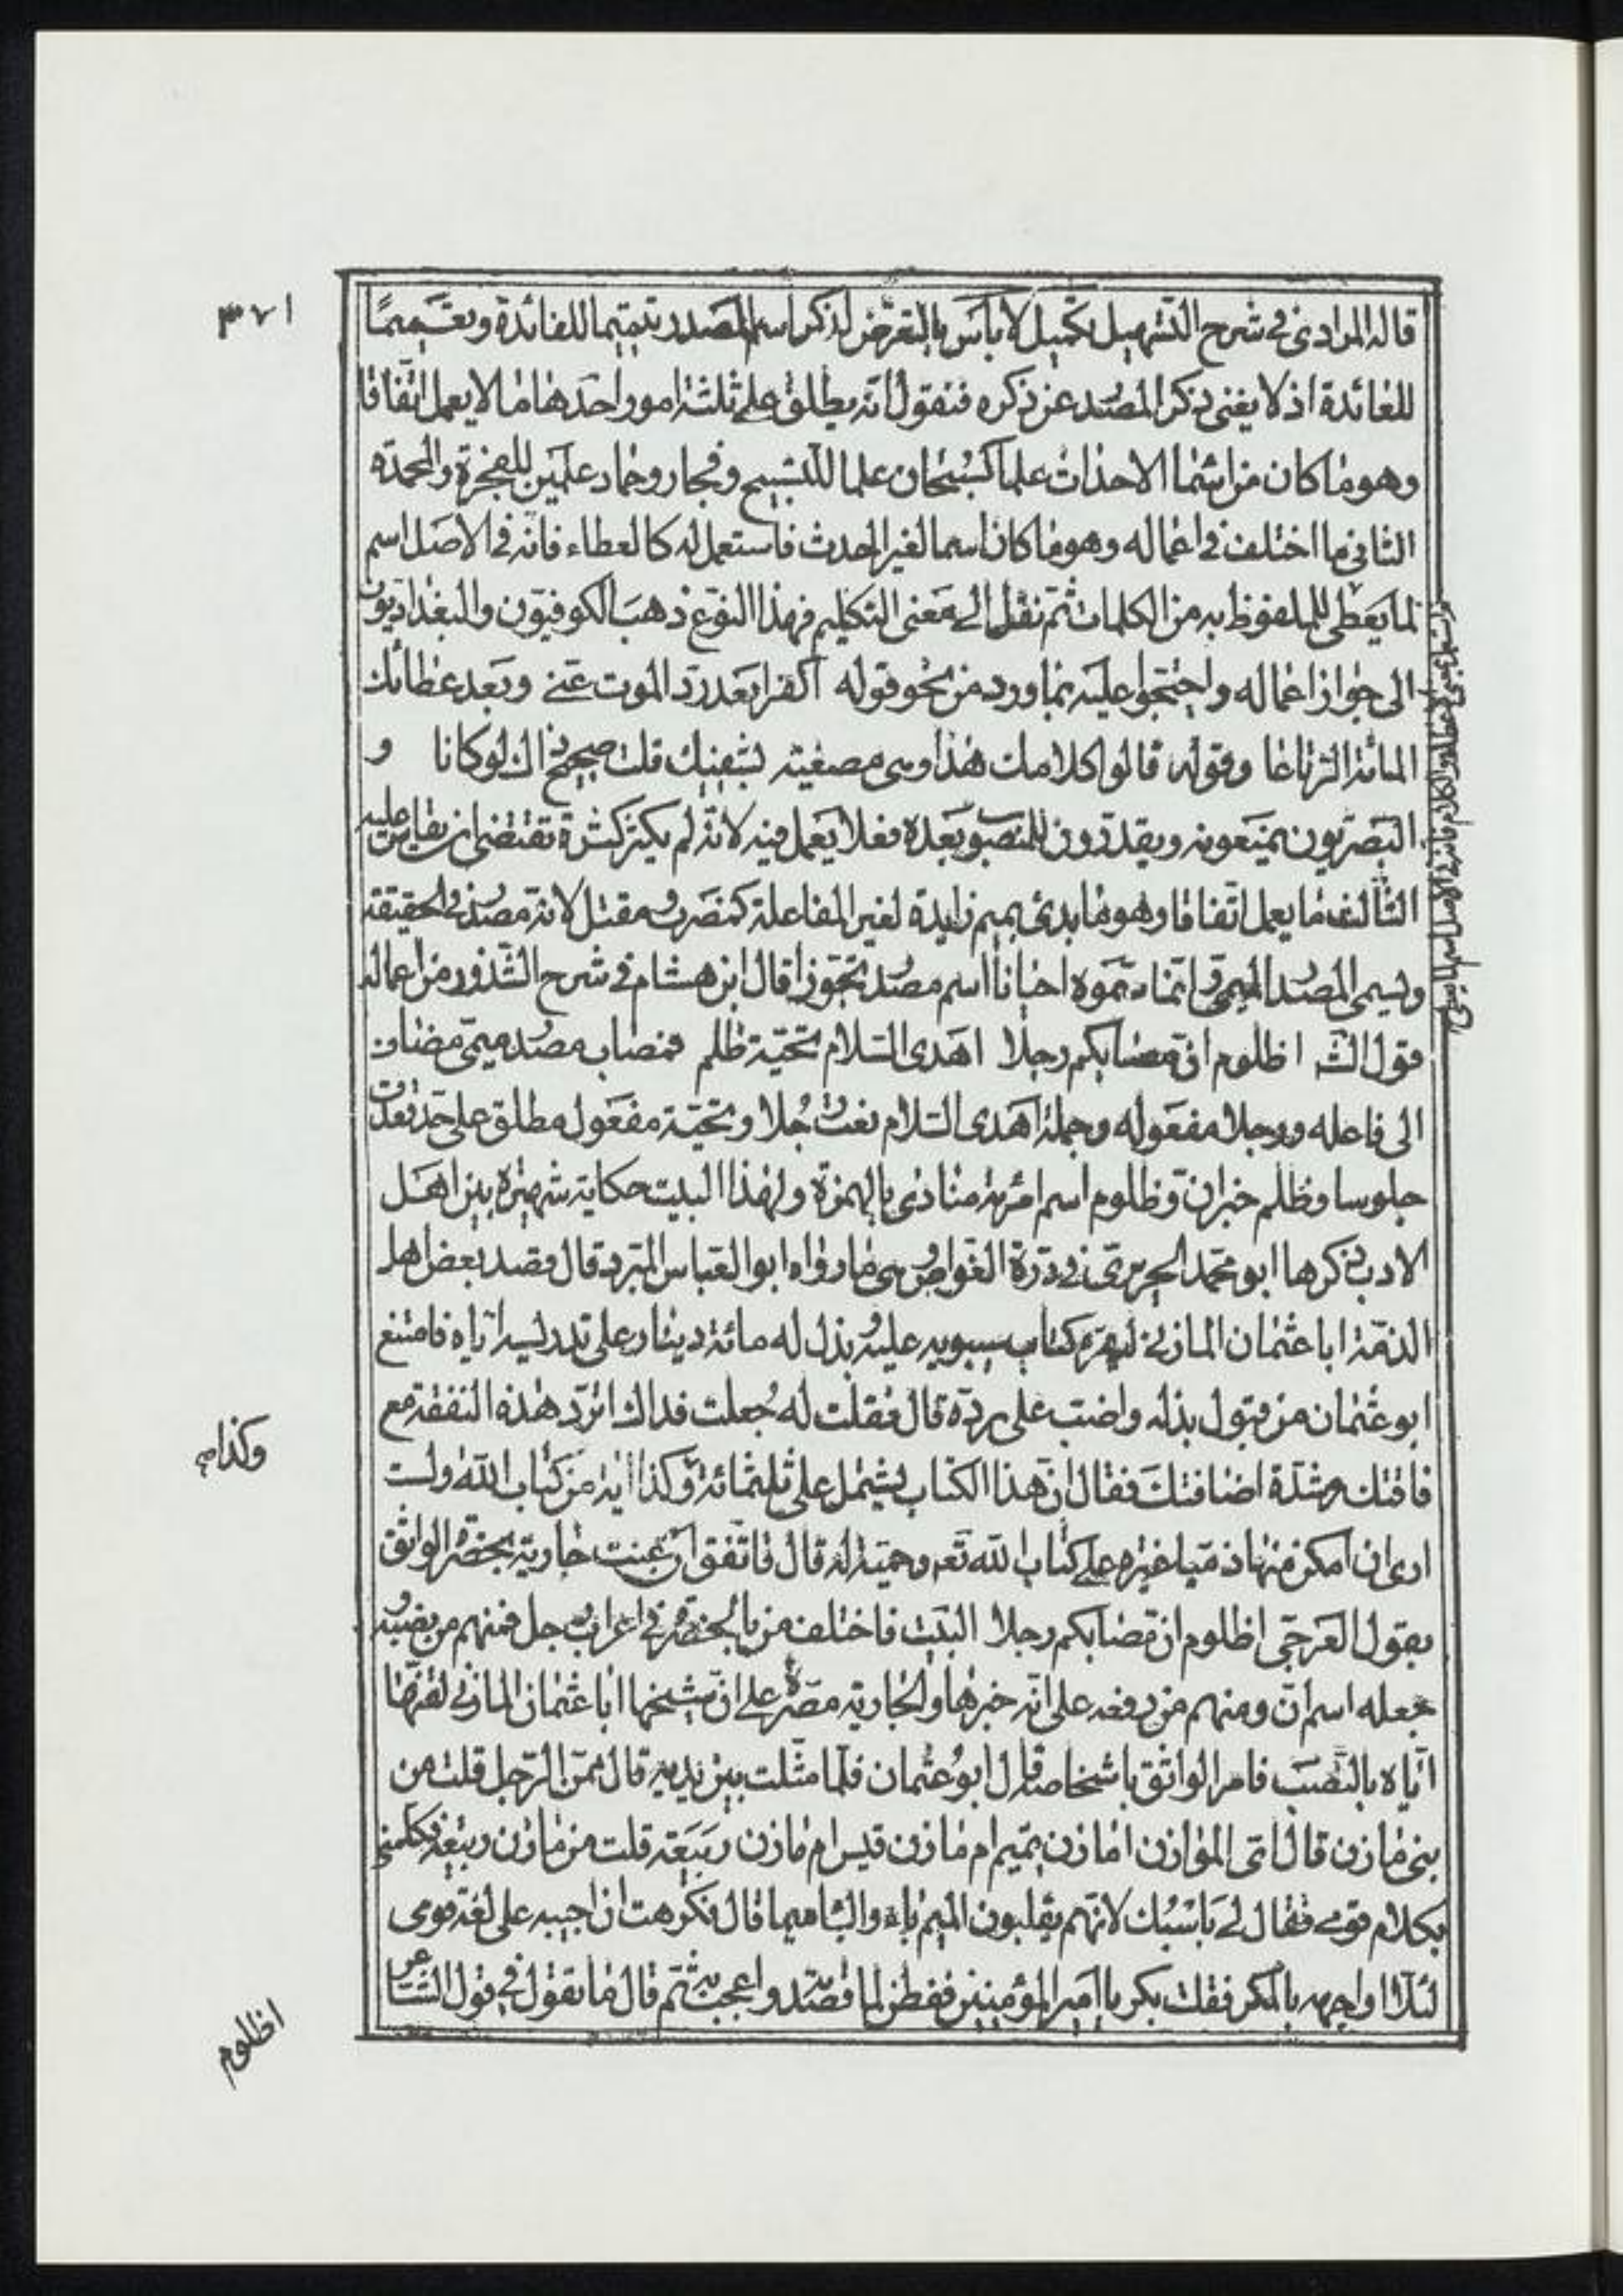 ٣٧١
قاله المرادى فى شرح التسهيل تكميل لا بأس بالتعرّض لذكر اسم المصدر تتميما للفائدة وتعميمًا
للفائدة اذ لا يغنى ذكر المصدر عن ذكره فنقول انّه يطلق على ثلثة امور احدها ما لا يعمل اتّفاقا
وهو ما كان من اسماء الاحداث علما كسبحان علما للتسبيح وفجار وحماد علمين للفجرة والمحمدة
الثانى ما اختلف فى اعماله وهو ما كان اسما لغير الحدث فاستعمل له كالعطاء فانّه فى الاصل اسم
لما يعطى للملفوظ به من الكلمات ثمّ نقل الى معنى التكليم فهذا النوع ذهب الكوفيّون والبغداديّون
الى جواز اعماله واحتجّوا عليه بما ورد من نحو قوله اكفرا بعد ردّ الموت عنّى وبعد عطائك
المائة الرتاعا وقوله قالوا كلامك هندا وهى مصغية يشفيك قلت صحيح ذاك لو كانا و
البصريّون يمنعونه ويقدّرون للمنصوب بعده فعلا يعمل فيه لانّه لم يكثر كثرة تقتضى ان يقاس عليه
الثالث ما يعمل اتّفاقا وهو ما بدئ بميم زايدة لغير المفاعلة كمضرب ومقتل لانّه مصدر فى الحقيقة
ويسمى المصدر الميمى وانّما سمّوه احيانا اسم مصدر تجوّزا قال ابن هشام فى شرح الشذور من اعماله
قول الشـ اظلوم انّ مصابكم رجلا اهدى السّلام تحيّة ظلم فمصاب مصدر ميمّى مضاف
الى فاعله ورجلا مفعوله وجملة اهدى السّلام نعت رجلا وتحيّة مفعول مطلق على حدّ قعدت
جلوسا وظلم خبر انّ وظلوم اسم امرئة منادى بالهمزة ولهذا البيت حكاية شهيرة بين اهل
الادب ذكرها ابو محمّد الحريرىّ فى درّة الغوّاص وهى ما رواه ابو العبّاس المبرد قال قصد بعض اهل
الذمّة ابا عثمان المازنى ليقرء كتاب سيبويه عليه وبذل له مائة دينار على تدريسه ايّاه فامتنع
ابو عثمان من قبول بذله واضب على ردّه قال فقلت له جعلت فداك اتردّ هذه النفقة مع
فاقتك وشدّة اضافتك فقال انّ هذا الكتاب يشتمل على ثلثمائة وكذا اية من كتاب الله ولست
ارى ان امكن منها ذمّيا غيرة على كتاب الله تعه وحميّة له قال فاتّفق ان غنت جارية بحضرة الواثق
بقول العرجّى اظلوم انّ مصابكم رجلا البيت فاختلف من بالحضرة فى اعراب رجل فمنهم من نصبه و
جعله اسم انّ ومنهم من رفعه على انّه خبرها والجارية مصرّة على انّ شيخها ابا عثمان المازنى لقنها
ايّاه بالنّصب فامر الواثق باشخاصه قال ابو عثمان فلمّا مثّلت بين يديه قال ممّن الرّجل قلت من
بنى مازن قال اىّ الموازن امازن تميم ام مازن قيس ام مازن ربيعة قلت من مازن ربيعة فكلّمنى
بكلام قومى فقال لى باسبك لانّهم يقلبون الميم باء والباء ميما قال فكرهت ان اجيبه على لغة قومى
لئلّا اواجهه بالمكر فقلت بكر يا امير المؤمنين ففطن لما قصدته واعجب به ثمّ قال ما تقول فى قول الشّاعر
وكذا
اظلوم